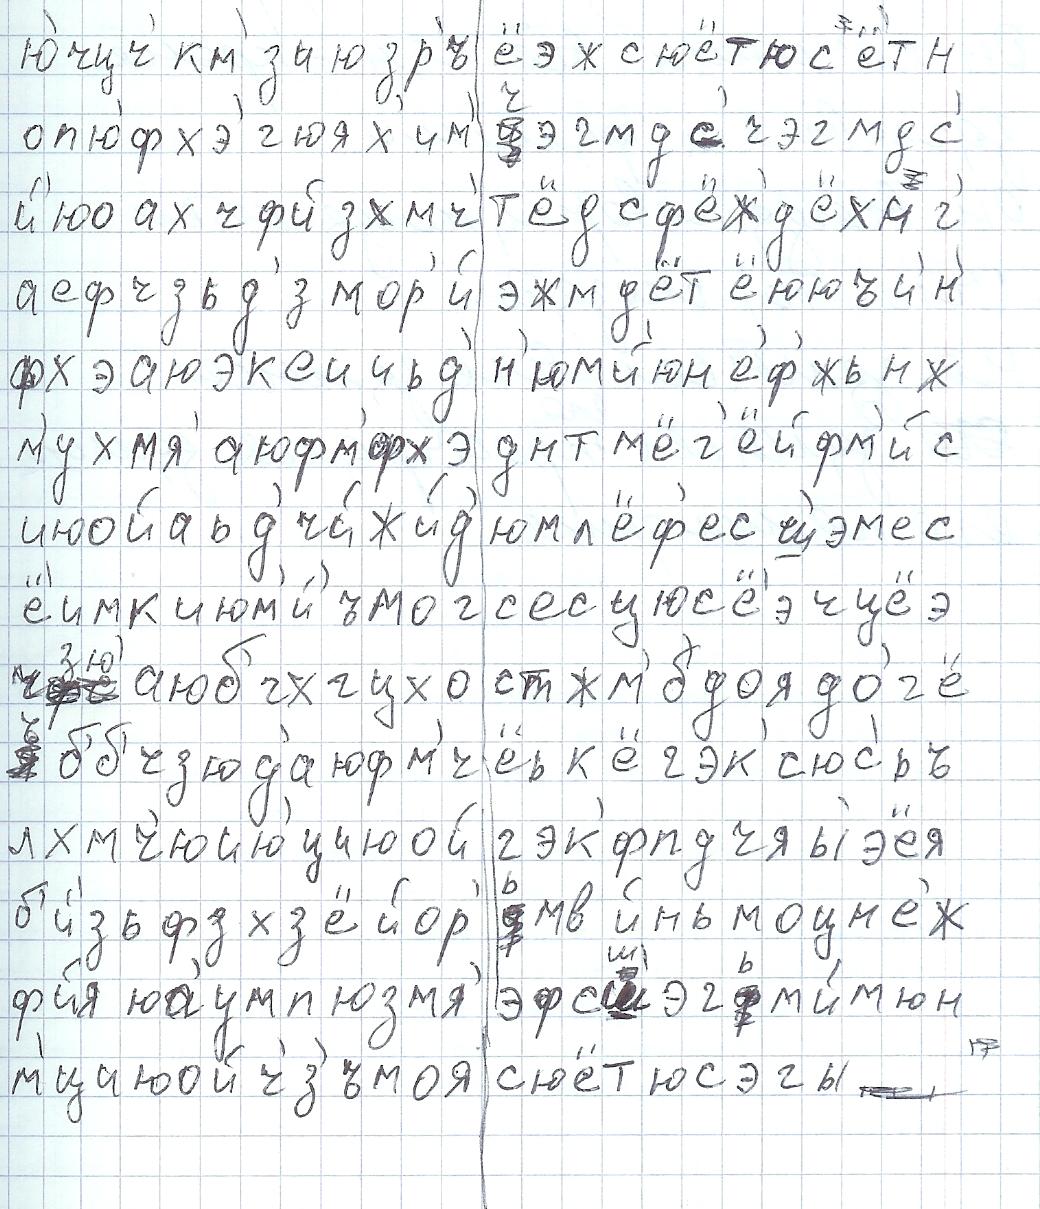 ю'чцч' к м' з и ю з р'ъ ё э ж с ю ё т ю с'ё'т н
о п ю'ф х э' г ю я х' и м' ч э г м д с' ч э г м д с'
й'ю о а х ч ф й з х м ч' т ё д с ф ё ж' д ё х н г'
а е ф ч з ь д' з м о р'й э ж м д ё т ё ю ю ъ и'н'
ф х э а ю э к е и и ь д' н'ю м й'ю н е'ф'ж ь н ж
м'у х м я' а ю ф м'ф х э д н т м ё г'ё й ф м'й с
и ю о й а ь д'ч й ж й д' ю м л ё ф'е с щ э м е с
ё'и м к и ю м'й' ъ м о г с е с ц ю с ё'э ч ц ё э
ч з ю' а ю б'г х г ц х о с т ж м'б'д о я д о'г ё
ъ б'б'ч з ю д'а ю ф м'ч ё ь к ё г э к'с ю с'ь ъ
л х м ч'ю и ю'ц и ю о й г э к'ф п д ч я ы'э ё я
б'й'з ь ф з х з ё й о р' ь м в й н ь м о ц н е'ж
ф й я ю а'у м п ю з м я' э ф с ш'э г ь м й м ю н
м'ц и ю о й ч'з'ъ м о я с ю ё т ю с э г ы
17